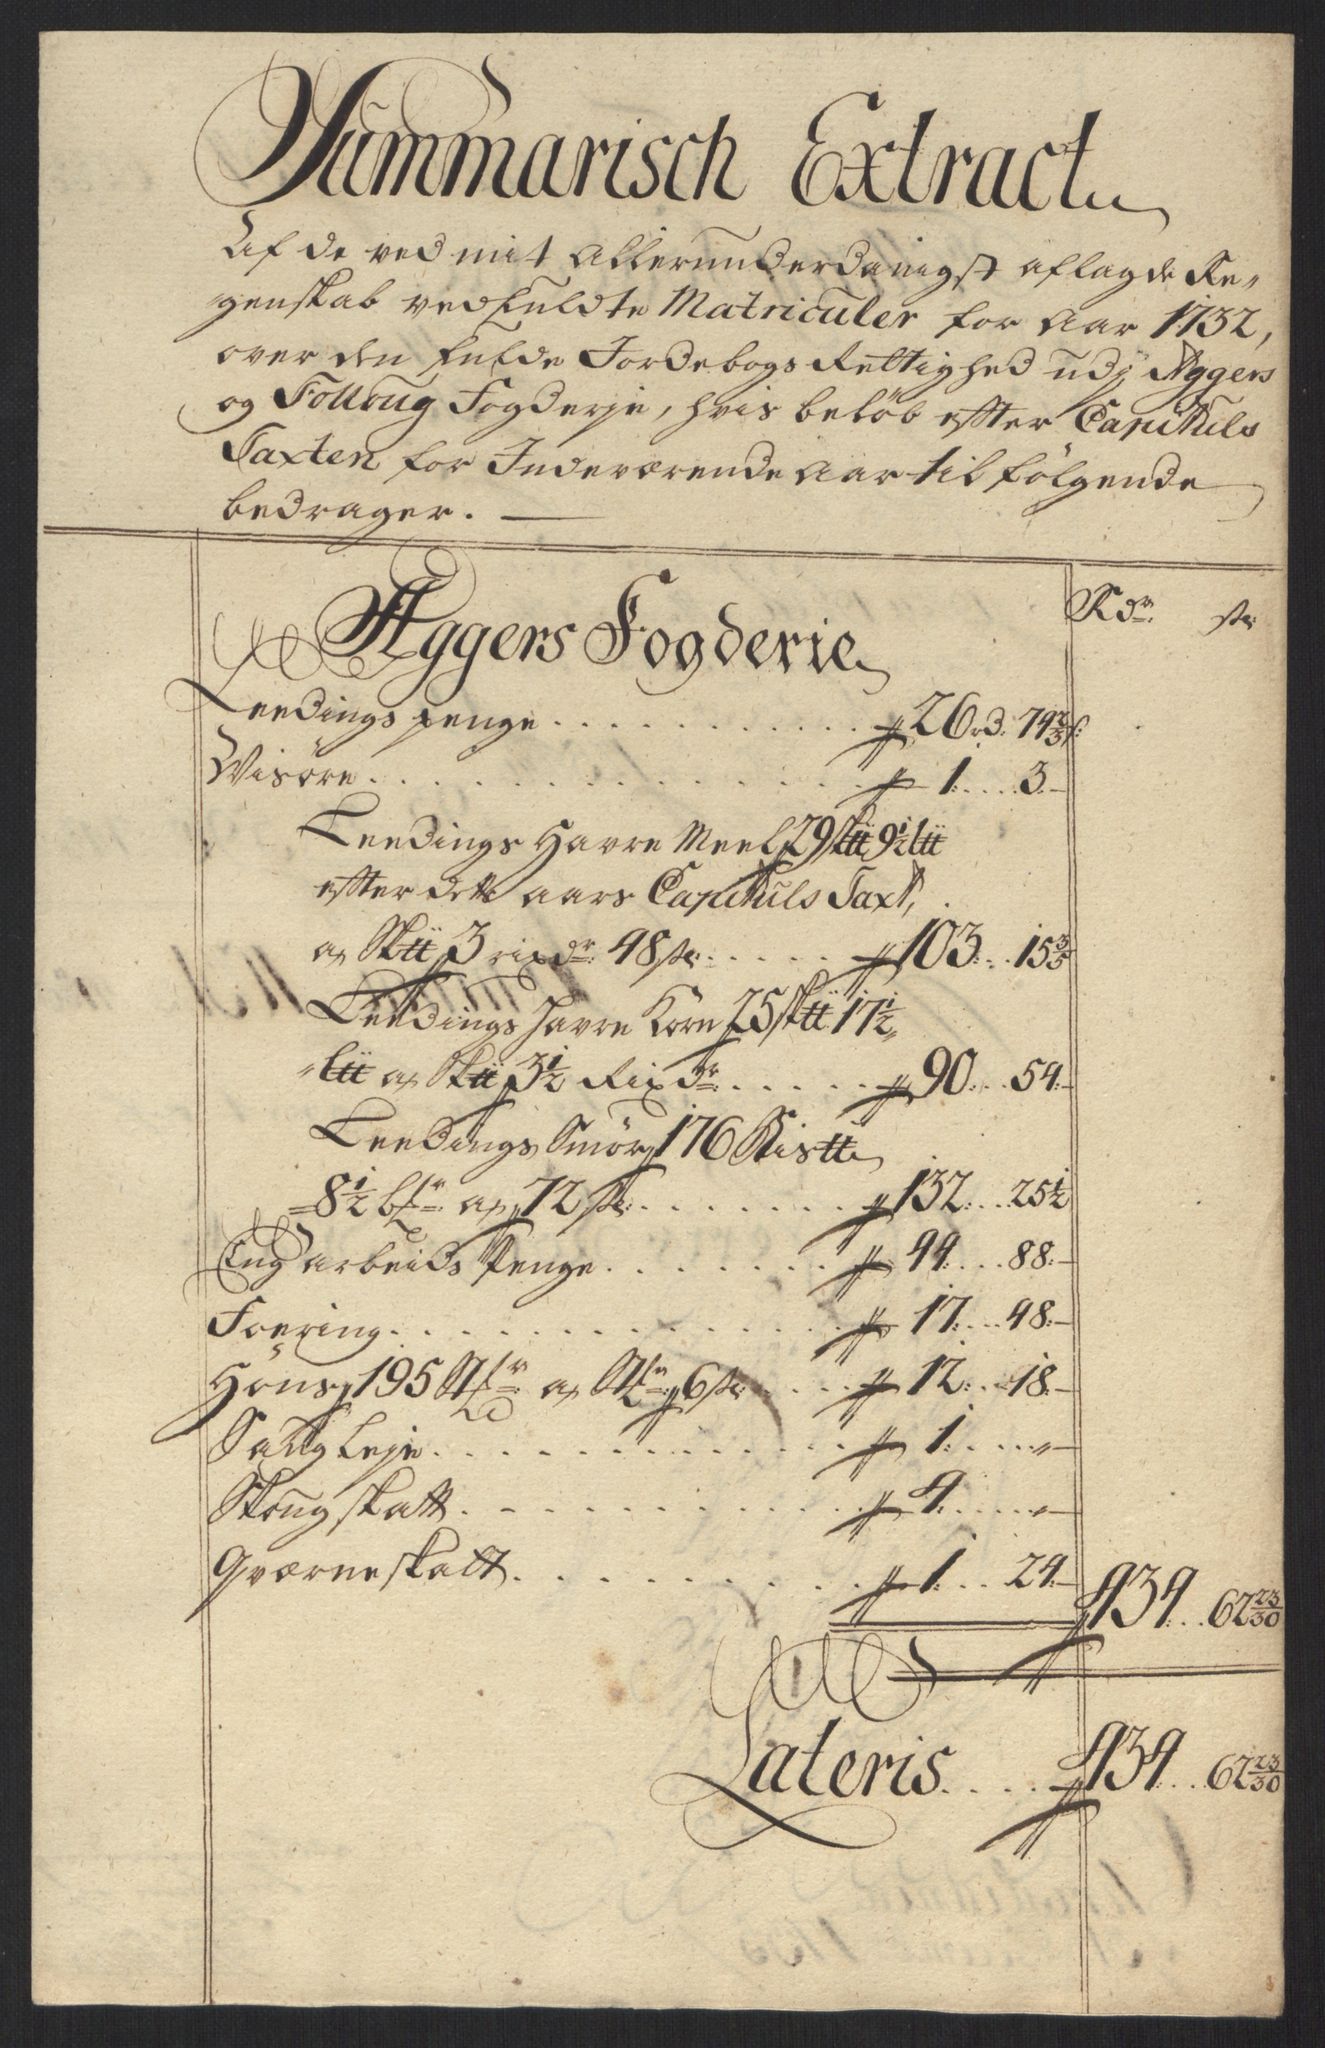 Summarisch Extract
Af de ved mit Allerunderdanigst aflagde Re„
genskab vedfuldte Matriculer for Aar 1732,
over den fulde Jordebogs Rettighed udj Aggers
og Folloug Fogderje, hvis beløb efter Capituls
Taxten for Indeværende Aar til følgende
bedrager. —
Aggers Fogderie
Rdr. sk:
Leedings penge . . . 26 rd. 74 2/3 s:
Wisøre . . . 1: 3.
Leedings Havre Meel 29 Sk℔ 9 1/2 l℔
efter dette aars Capituls Taxt,
a Sk℔ 3 rixdr: 48 sk: . . . 103: 15 3/5
Leedings Havre Korn 25 sk℔ 17 1/2
„l℔ a Sk℔ 3 1/2 Rixdr: . . . 90: 54:
Leedings Smør 176 Bismer
8 1/2 a 72 sk: . . . 132: 25 1/2
Eng arbeids Penge . . . 44: 88:
Foering . . . 17: 48:
Høns 195 Stkr: a Stk: 6 sk: . . . 12: 18:
Saug Leje . . . 1: „
Skougskatt . . . 4: „
Qværneskatt . . . 1: 24:
434: 62 23/30
Lateris . . . 434: 62 23/30